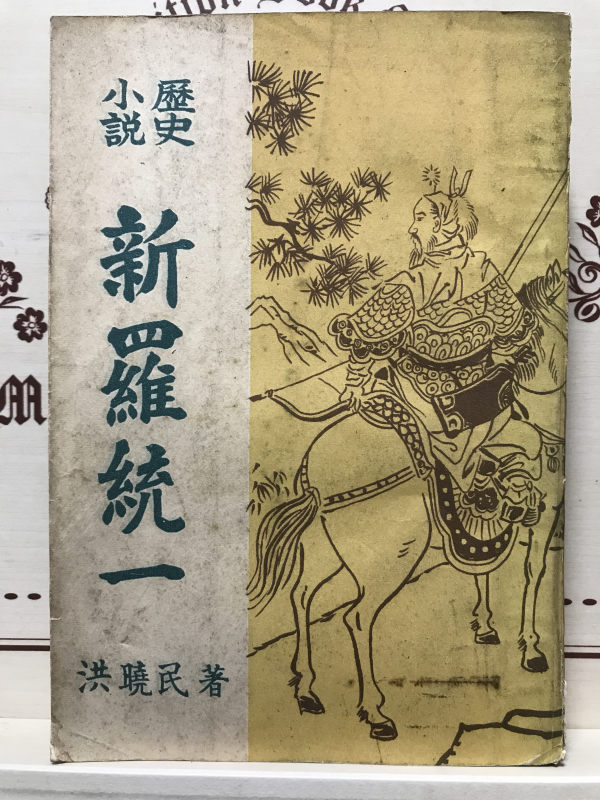 歷史
小説
新羅統一
洪曉民 著